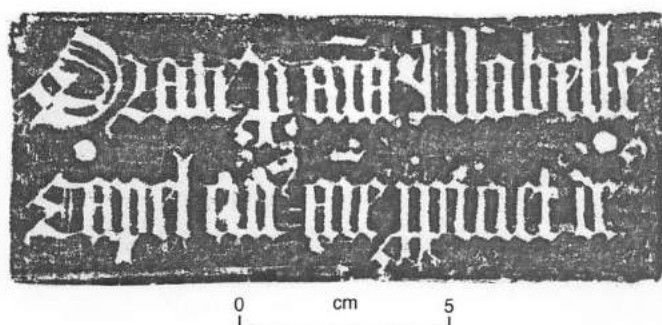 Orate ꝑ aīa Isabelle
Sapel cuiꝰ aīe ppiciet de
0 cm 5